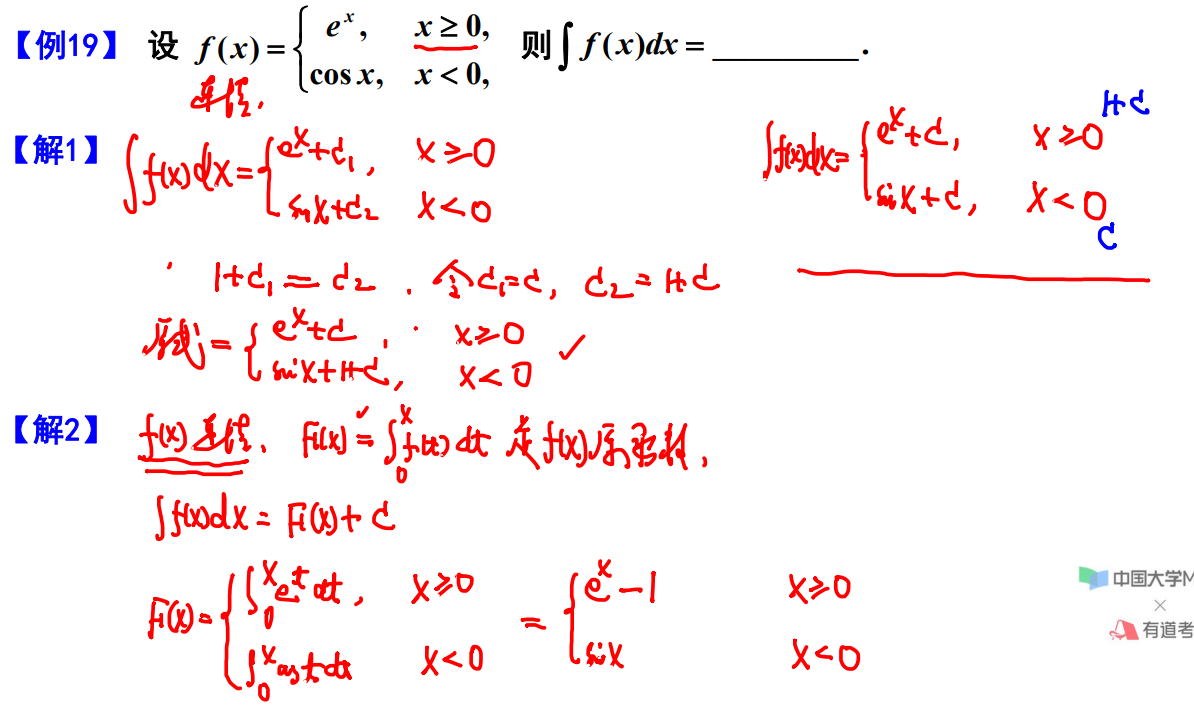 【例19】 设 f(x) = { e^x, x ≥ 0, cos x, x < 0, 则 ∫ f(x)dx = __________ .
连续.
【解1】 ∫f(x)dx = { e^x+C₁, x ≥ 0
sinx+C₂ x < 0
∫f(x)dx = { e^x+C, x ≥ 0 1+C
sinx+C, x < 0 C
1+C₁ = C₂ . 令C₁=C, C₂ = 1+C
原式 = { e^x+C, x ≥ 0 ✓
sinx+1+C, x < 0
【解2】 f(x) 连续. F(x) = ∫₀^x f(t)dt 是 f(x) 原函数,
∫f(x)dx = F(x)+C
F(x) = { ∫₀^x e^t dt, x ≥ 0 = { e^x - 1 x ≥ 0
∫₀^x cost dt x < 0 sinx x < 0
中国大学M
×
有道考